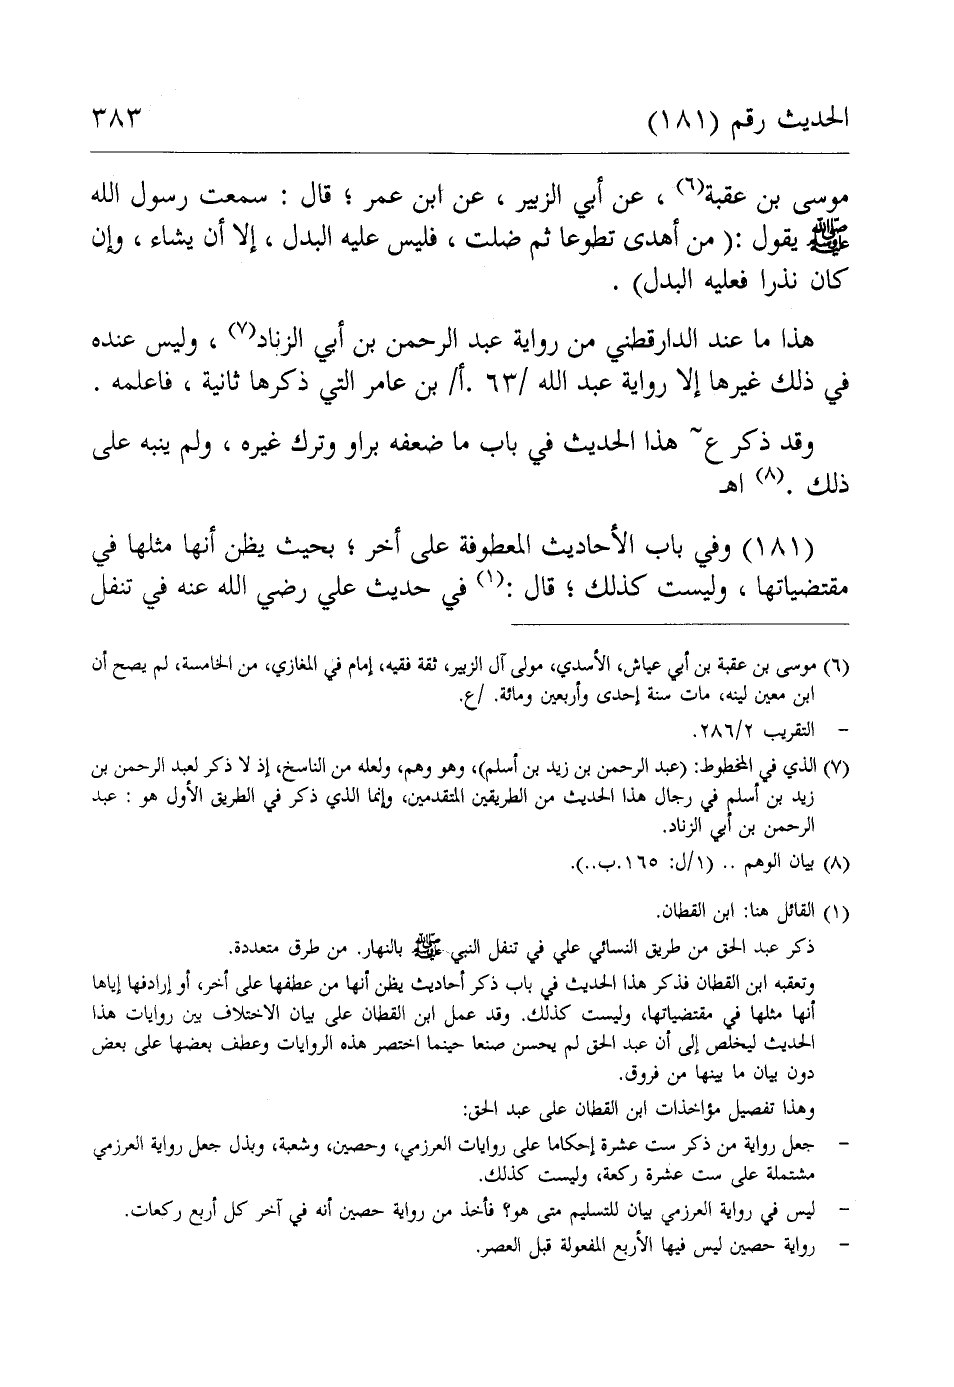 الحديث رقم (١٨١) ٣٨٣
موسى بن عقبة(٦) ، عن أبي الزبير ، عن ابن عمر ؛ قال : سمعت رسول الله
ﷺ يقول :( من أهدى تطوعا ثم ضلت ، فليس عليه البدل ، إلا أن يشاء ، وإن
كان نذرا فعليه البدل) .
هذا ما عند الدارقطني من رواية عبد الرحمن بن أبي الزناد(٧) ، وليس عنده
في ذلك غيرها إلا رواية عبد الله /٦٣ .أ/ بن عامر التي ذكرها ثانية ، فاعلمه .
وقد ذكر ع~ هذا الحديث في باب ما ضعفه براو وترك غيره ، ولم ينبه على
ذلك .(٨) اهـ
(١٨١) وفي باب الأحاديث المعطوفة على أخر ؛ بحيث يظن أنها مثلها في
مقتضياتها ، وليست كذلك ؛ قال :(١) في حديث علي رضي الله عنه في تنفل
(٦) موسى بن عقبة بن أبي عياش، الأسدي، مولى آل الزبير، ثقة فقيه، إمام في المغازي، من الخامسة، لم يصح أن
ابن معين لينه، مات سنة إحدى وأربعين ومائة. /ع.
- التقريب ٢/٢٨٦.
(٧) الذي في المخطوط: (عبد الرحمن بن زيد بن أسلم)، وهو وهم، ولعله من الناسخ، إذ لا ذكر لعبد الرحمن بن
زيد بن أسلم في رجال هذا الحديث من الطريقين المتقدمين، وإنما الذي ذكر في الطريق الأول هو : عبد
الرحمن بن أبي الزناد.
(٨) بيان الوهم .. (١/ل: ١٦٥.ب..).
(١) القائل هنا: ابن القطان.
ذكر عبد الحق من طريق النسائي علي في تنفل النبي ﷺ بالنهار. من طرق متعددة.
وتعقبه ابن القطان فذكر هذا الحديث في باب ذكر أحاديث يظن أنها من عطفها على أخر، أو إرادفها إياها
أنها مثلها في مقتضياتها، وليست كذلك. وقد عمل ابن القطان على بيان الاختلاف بين روايات هذا
الحديث ليخلص إلى أن عبد الحق لم يحسن صنعا حينما اختصر هذه الروايات وعطف بعضها على بعض
دون بيان ما بينها من فروق.
وهذا تفصيل مؤاخذات ابن القطان على عبد الحق:
- جعل رواية من ذكر ست عشرة إحكاما على روايات العرزمي، وحصين، وشعبة، وبذل جعل رواية العرزمي
مشتملة على ست عشرة ركعة، وليست كذلك.
- ليس في رواية العرزمي بيان للتسليم متى هو؟ فأخذ من رواية حصين أنه في آخر كل أربع ركعات.
- رواية حصين ليس فيها الأربع المفعولة قبل العصر.